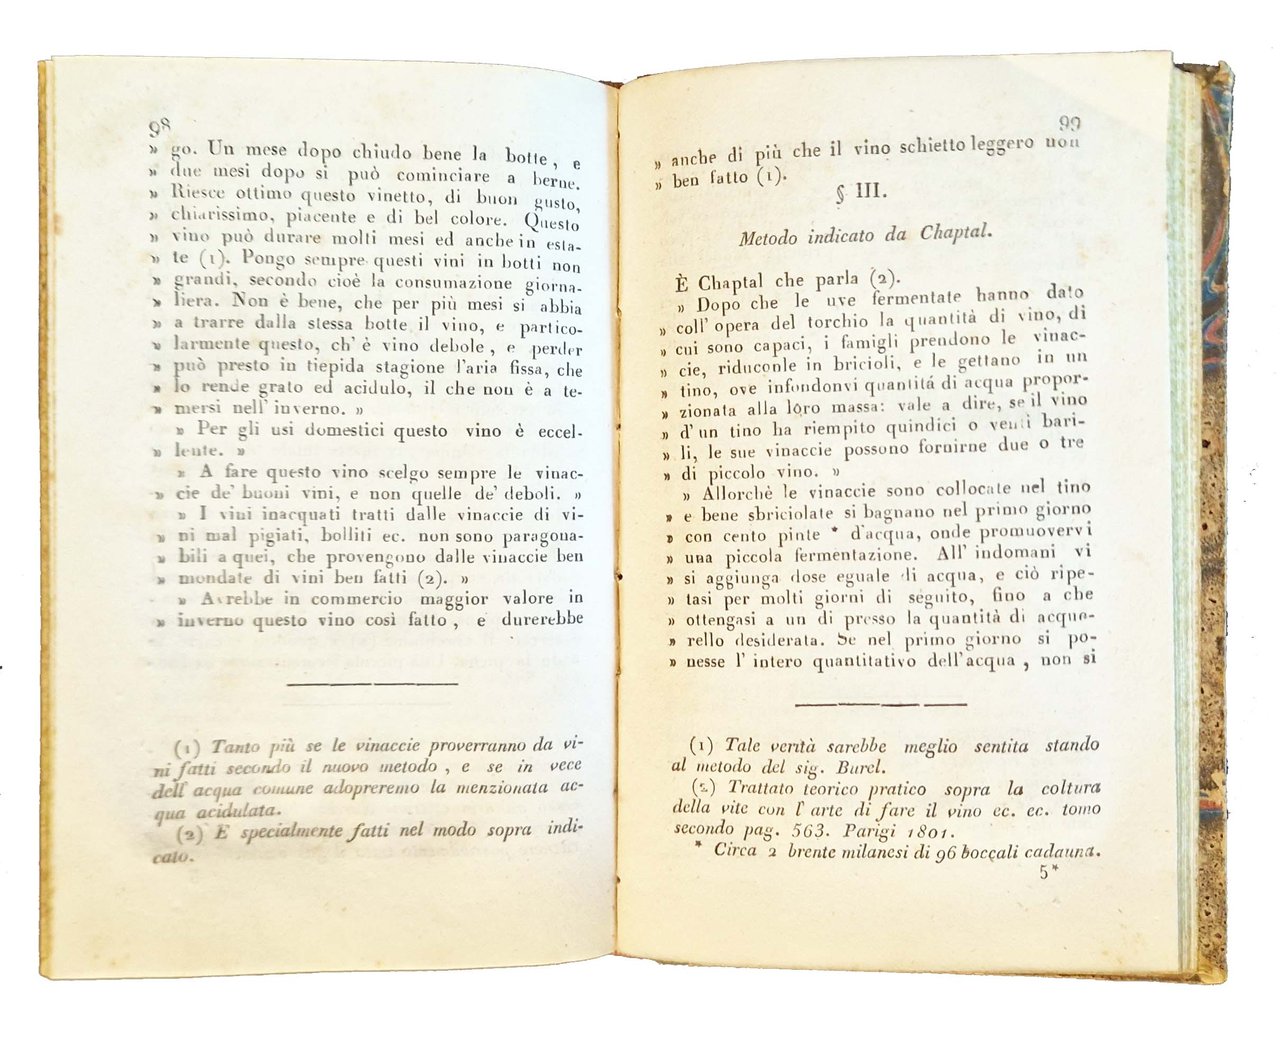 98
» go. Un mese dopo chiudo bene la botte, e
» due mesi dopo si può cominciare a berne.
» Riesce ottimo questo vinetto, di buon gusto,
» chiarissimo, piacente e di bel colore. Questo
» vino può durare molti mesi ed anche in esta-
» te (1). Pongo sempre questi vini in botti non
» grandi, secondo cioè la consumazione giorna-
» liera. Non è bene, che per più mesi si abbia
» a trarre dalla stessa botte il vino, e partico-
» larmente questo, ch' è vino debole, e perder
» può presto in tiepida stagione l'aria fissa, che
» lo rende grato ed acidulo, il che non è a te-
» mersi nell' inverno. »
» Per gli usi domestici questo vino è eccel-
» lente. »
» A fare questo vino scelgo sempre le vinac-
» cie de' buoni vini, e non quelle de' deboli. »
» I vini inacquati tratti dalle vinaccie di vi-
» ni mal pigiati, bolliti ec. non sono paragona-
» bili a quei, che provengono dalle vinaccie ben
» mondate di vini ben fatti (2). »
» Avrebbe in commercio maggior valore in
» inverno questo vino così fatto, e durerebbe
(1) Tanto più se le vinaccie proverranno da vi-
ni fatti secondo il nuovo metodo, e se in vece
dell' acqua comune adopreremo la menzionata ac-
qua acidulata.
(2) E specialmente fatti nel modo sopra indi-
cato.
99
» anche di più che il vino schietto leggero non
» ben fatto (1).
§ III.
Metodo indicato da Chaptal.
È Chaptal che parla (2).
» Dopo che le uve fermentate hanno dato
» coll' opera del torchio la quantità di vino, di
» cui sono capaci, i famigli prendono le vinac-
» cie, riduconle in bricioli, e le gettano in un
» tino, ove infondonvi quantitá di acqua propor-
» zionata alla loro massa: vale a dire, se il vino
» d' un tino ha riempito quindici o venti bari-
» li, le sue vinaccie possono fornirne due o tre
» di piccolo vino. »
» Allorchè le vinaccie sono collocate nel tino
» e bene sbriciolate si bagnano nel primo giorno
» con cento pinte * d'acqua, onde promuovervi
» una piccola fermentazione. All' indomani vi
» si aggiunga dose eguale di acqua, e ciò ripe-
» tasi per molti giorni di seguito, fino a che
» ottengasi a un di presso la quantità di acque-
» rello desiderata. Se nel primo giorno si po-
» nesse l' intero quantitativo dell'acqua, non si
(1) Tale verità sarebbe meglio sentita stando
al metodo del sig. Burel.
(2) Trattato teorico pratico sopra la coltura
della vite con l' arte di fare il vino ec. ec. tomo
secondo pag. 563. Parigi 1801.
* Circa 2 brente milanesi di 96 boccali cadauna.
5*